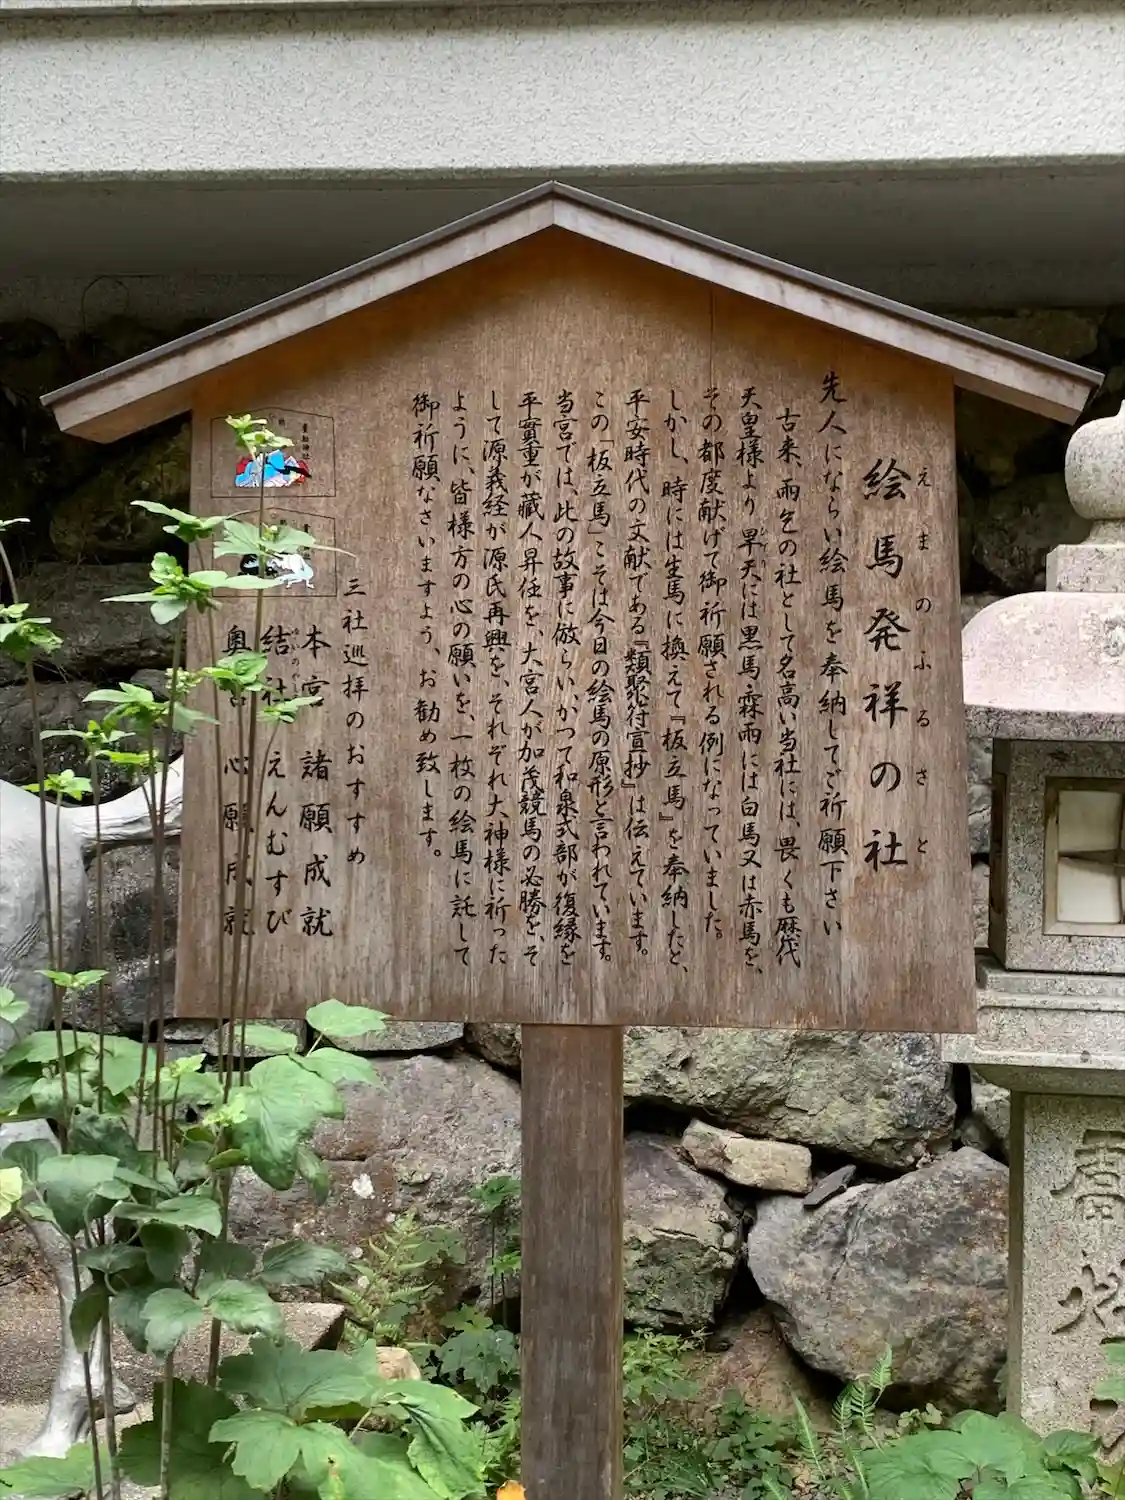 絵馬発祥の社
えまのふるさと
先人にならい絵馬を奉納してご祈願下さい
古来、雨乞の社として名高い当社には、畏くも歴代
天皇様より旱天には黒馬・霖雨には白馬又は赤馬を、
その都度献げて御祈願される例になっていました。
しかし、時には生馬に換えて『板立馬』を奉納したと、
平安時代の文献である『類聚符宣抄』は伝えています。
この「板立馬」こそは今日の絵馬の原形と言われています。
当宮では、此の故事に倣らい、かつて和泉式部が復縁を
平實重が蔵人昇任を、大宮人が加茂競馬の必勝を、そ
して源義経が源氏再興を、それぞれ大神様に祈った
ように、皆様方の心の願いを、一枚の絵馬に託して
御祈願なさいますよう、お勧め致します。
三社巡拝のおすすめ
本宮 諸願成就
結社 えんむすび
奥宮 心願成就